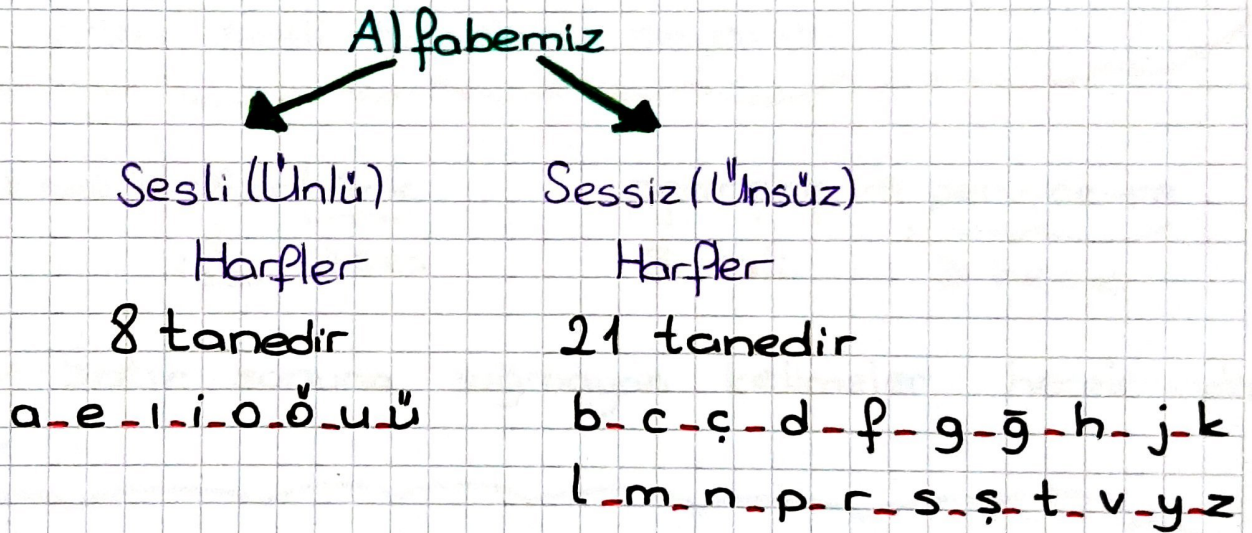 Alfabemiz
Sesli (Ünlü)
Harfler
8 tanedir
a-e-ı-i-o-ö-u-ü
Sessiz (Ünsüz)
Harfler
21 tanedir
b-c-ç-d-f-g-ğ-h-j-k
l-m-n-p-r-s-ş-t-v-y-z